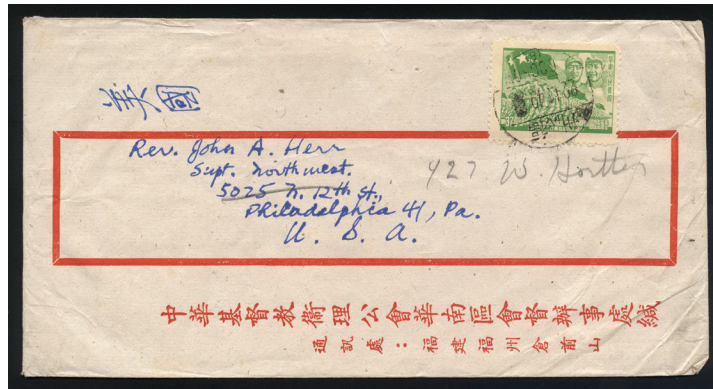 美國
Rev. John A. Herr
Supt. Northwest.
5025 N. 12th St.,
Philadelphia 41, Pa.
U. S. A.
427 W.
中華基督教衛理公會華南區會督辦事處緘
通訊處：福建福州倉前山